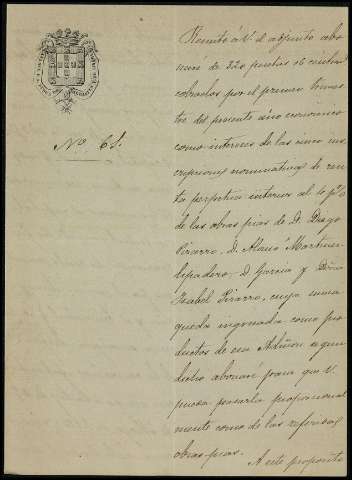 Nº 65.
Remito á V. el adjunto abo
naré de 320 pesetas 16 cents
cobradas por el primer trimes
tre del presente año económico
como intereses de las cinco ins
cripciones nominativas de ren
ta perpetua interior al 4 p%
de las obras pias de D. Diego
Pizarro, D. Alonso Martinez
D. Garcia y Doña
Isabel Pizarro, cuya suma
queda ingresada como pro
ductos de esa Admon. segun
dicho abonaré para que V.
pueda pasarla proporcional
mente como de las referidas
obras pias.
A este proposito